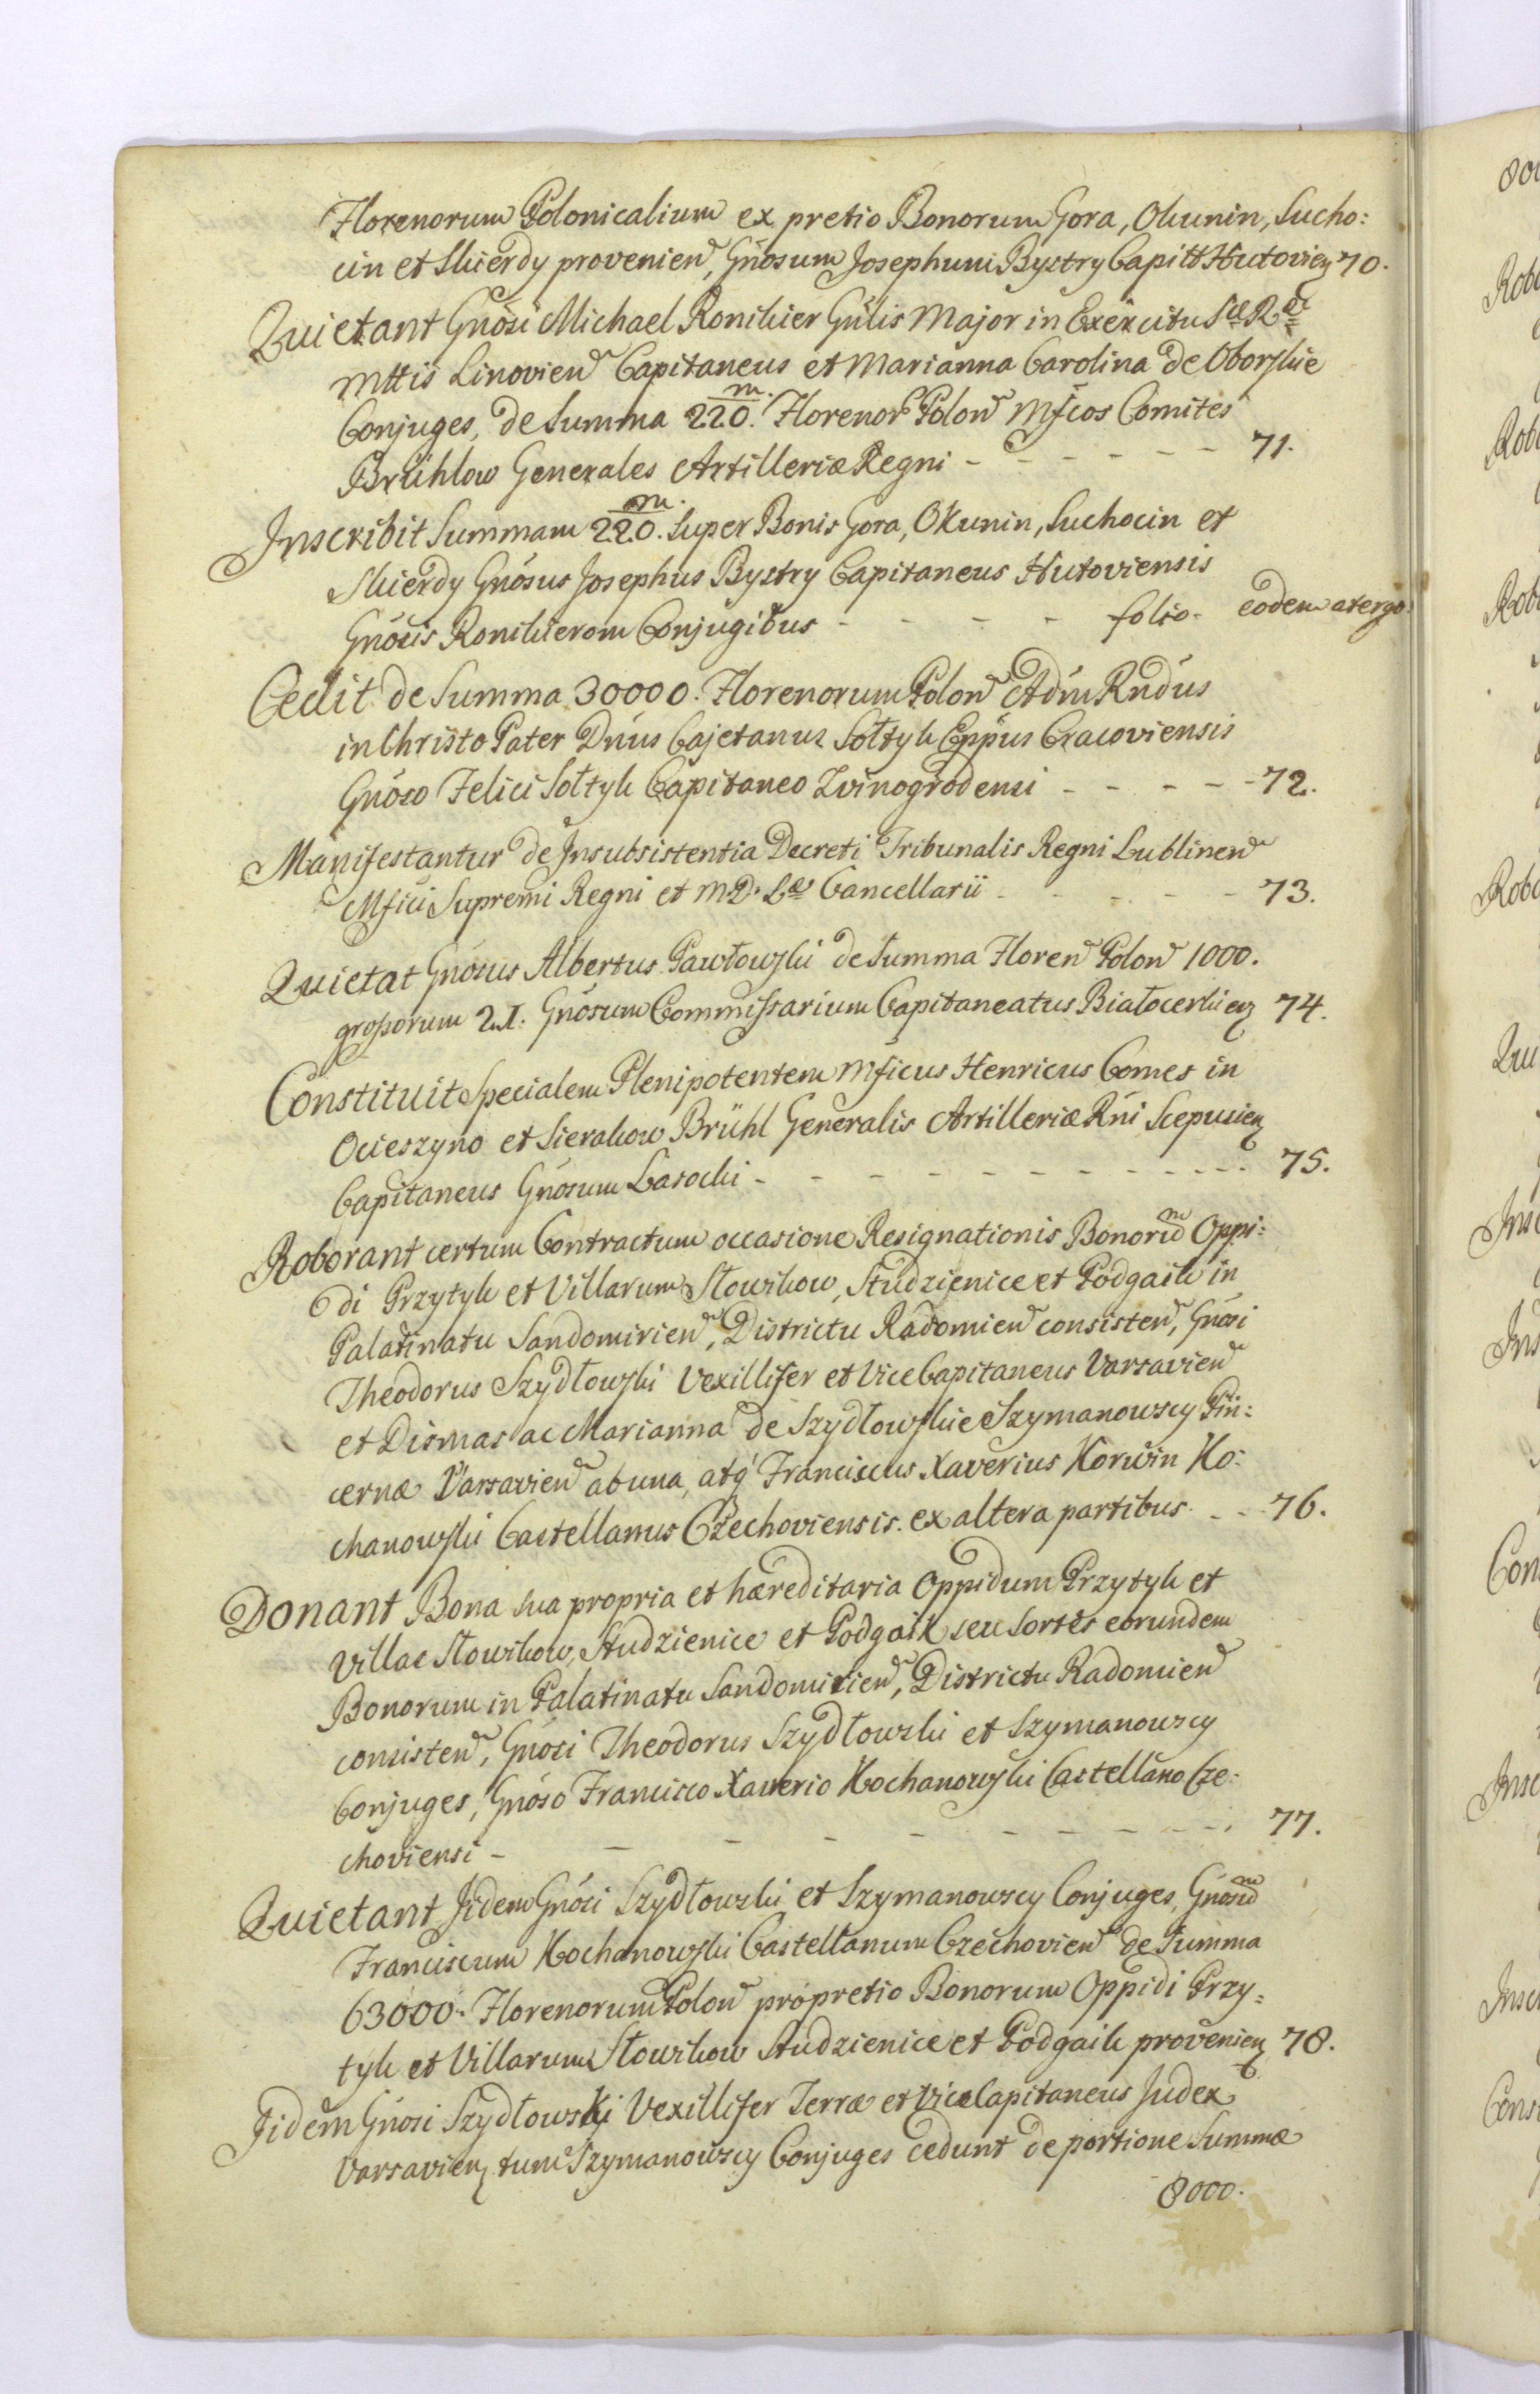 Florenorum Polonicalium ex pretio Bonorum Gora, Okunin, Sucho:
cin et Skierdy provenien, Gnosum Josephum Bystry Capitt Kutovien 70.
Quietant Gnosi Michael Ronikier Gnlis Major in Exercitu Sæ Ræ
Mttis Linovien Capitaneus et Marianna Carolina de Oborskie
Conjuges, de Summa 220.m Florenor Polon Mfcos Comites
Brühlow Generales Artilleriæ Regni - - - - - - 71.
Inscribit Summam 220.m Super Bonis Gora, Okunin, Suchocin et
Skierdy Gnosus Josephus Bystry Capitaneus Kutoviensis
Gnosis Ronikierom Conjugibus - - - - folio. eodem a tergo.
Cedit de Summa 30000. Florenorum Polon Adm Rndus
in Christo Pater Dnus Cajetanus Sołtyk Eppus Cracoviensis
Gnoso Felici Sołtyk Capitaneo Zvinogrodensi - - - - - 72.
Manifestantur de Insubsistentia Decreti Tribunalis Regni Lublinen
Mfici Supremi Regni et M.D. Læ Cancellarii - - - - - 73.
Quietat Gnosus Albertus Pawłowski de Summa Floren Polon 1000.
grossorum 21. Gnosum Commissarium Capitaneatus Białocerkien 74.
Constituit Specialem Plenipotentem Mficus Henricus Comes in
Ocieszyno et Sierakow Brühl Generalis Artilleriæ Rni Scepusien
Capitaneus Gnosum Lasocki - - - - - - - - - - 75.
Roborant certum Contractum occasione Resignationis Bonorum Oppi:
di Przytyk et Villarum Słowikow, Studzienice et Podgaik in
Palatinatu Sandomirien, Districtu Radomien consisten, Gnosi
Theodorus Szydłowski Vexillifer et Vice Capitaneus Varsavien
et Dismas ac Marianna de Szydłowskie Szymanowscy Pin:
cernæ Varsavien ab una, atq Franciscus Xaverius Korwin Ko:
chanowski Castellanus Czechoviensis ex altera partibus. - - 76.
Donant Bona sua propria et hæreditaria Oppidum Przytyk et
Villas Słowikow, Studzienice et Podgaik seu Sortes eorundem
Bonorum in Palatinatu Sandomirien, Districtu Radomien
consisten, Gnosi Theodorus Szydłowski et Szymanowscy
Conjuges, Gnoso Francisco Xaverio Kochanowski Castellano Cze:
choviensi - - - - - - - - - - 77.
Quietant Iidem Gnosi Szydłowski et Szymanowscy Conjuges, Gnosum
Franciscum Kochanowski Castellanum Czechovien de Summa
63000. Florenorum Polon pro pretio Bonorum Oppidi Przy:
tyk et Villarum Słowikow Studzienice et Podgaik provenien 78.
Iidem Gnosi Szydłowski Vexillifer Terræ et Vice Capitaneus Judex
Varsavien, tum Szymanowscy Conjuges cedunt de portione Summæ
8000.